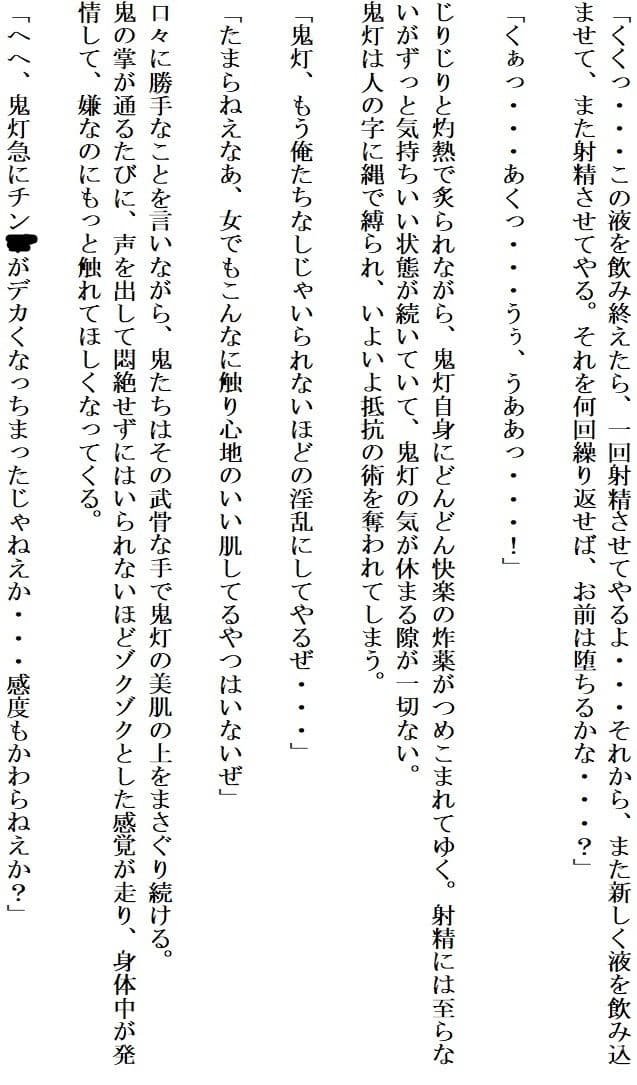 「くくっ・・・この液を飲み終えたら、一回射精させてやるよ・・・それから、また新しく液を飲み込
ませて、また射精させてやる。それを何回繰り返せば、お前は堕ちるかな・・・？」
「くぁっ・・・あくっ・・・うぅ、うああっ・・・！」
じりじりと灼熱で炙られながら、鬼灯自身にどんどん快楽の炸薬がつめこまれてゆく。射精には至らな
いがずっと気持ちいい状態が続いていて、鬼灯の気が休まる隙が一切ない。
鬼灯は人の字に縄で縛られ、いよいよ抵抗の術を奪われてしまう。
「鬼灯、もう俺たちなしじゃいられないほどの淫乱にしてやるぜ・・・」
「たまらねえなあ、女でもこんなに触り心地のいい肌してるやつはいないぜ」
口々に勝手なことを言いながら、鬼たちはその武骨な手で鬼灯の美肌の上をまさぐり続ける。
鬼の掌が通るたびに、声を出して悶絶せずにはいられないほどゾクゾクとした感覚が走り、身体中が発
情して、嫌なのにもっと触れてほしくなってくる。
「へへ、鬼灯急にチンがデカくなっちまったじゃねえか・・・感度もかわらねえか？」